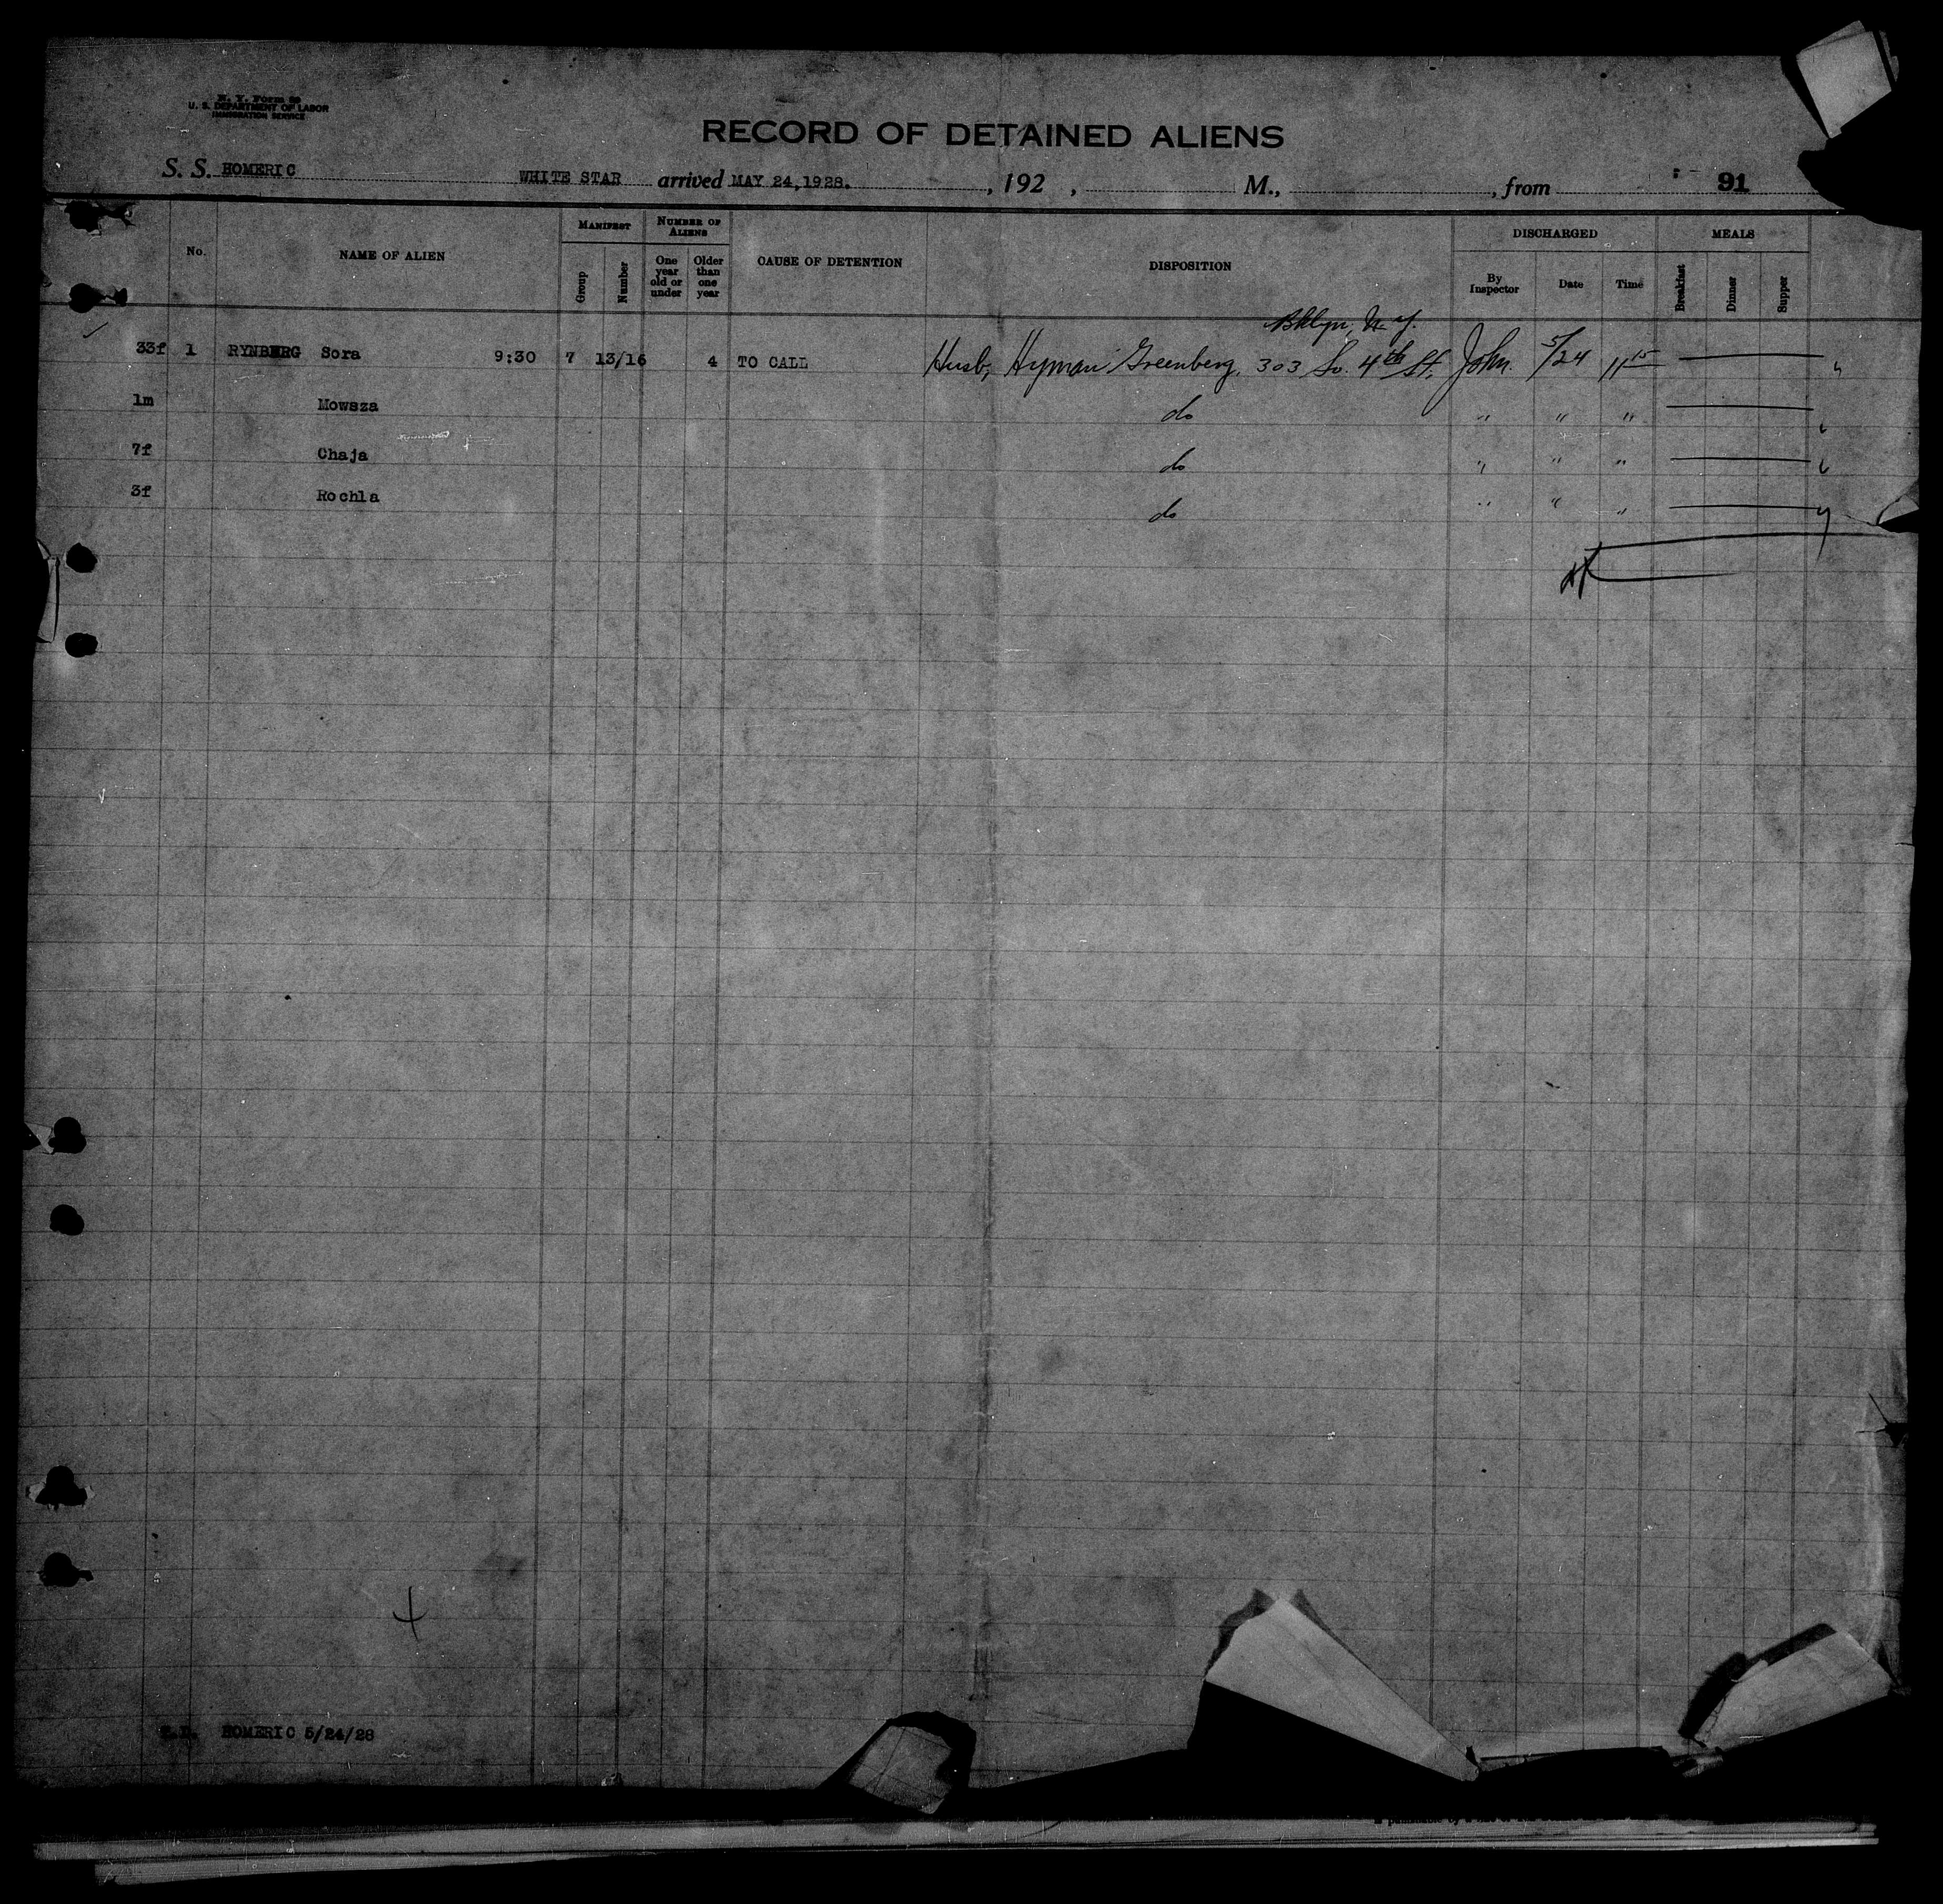 N. Y. Form 99
U. S. DEPARTMENT OF LABOR
IMMIGRATION SERVICE
RECORD OF DETAINED ALIENS
S. S. HOMERIC WHITE STAR arrived MAY 24,1928. , 192 , M., , from 91
No. NAME OF ALIEN MANIFEST Group Number NUMBER OF ALIENS One year old or under Older than one year CAUSE OF DETENTION DISPOSITION DISCHARGED By Inspector Date Time MEALS Breakfast Dinner Supper
Bklyn, N.Y.
33f 1 RYNBERG Sora 9:30 7 13/16 4 TO CALL Husb, Hyman Greenberg, 303 So. 4th St. John. 5/24 11 15
1m Mowsza do " " "
7f Chaja do " " "
3f Rochla do " " "
HOMERIC 5/24/28